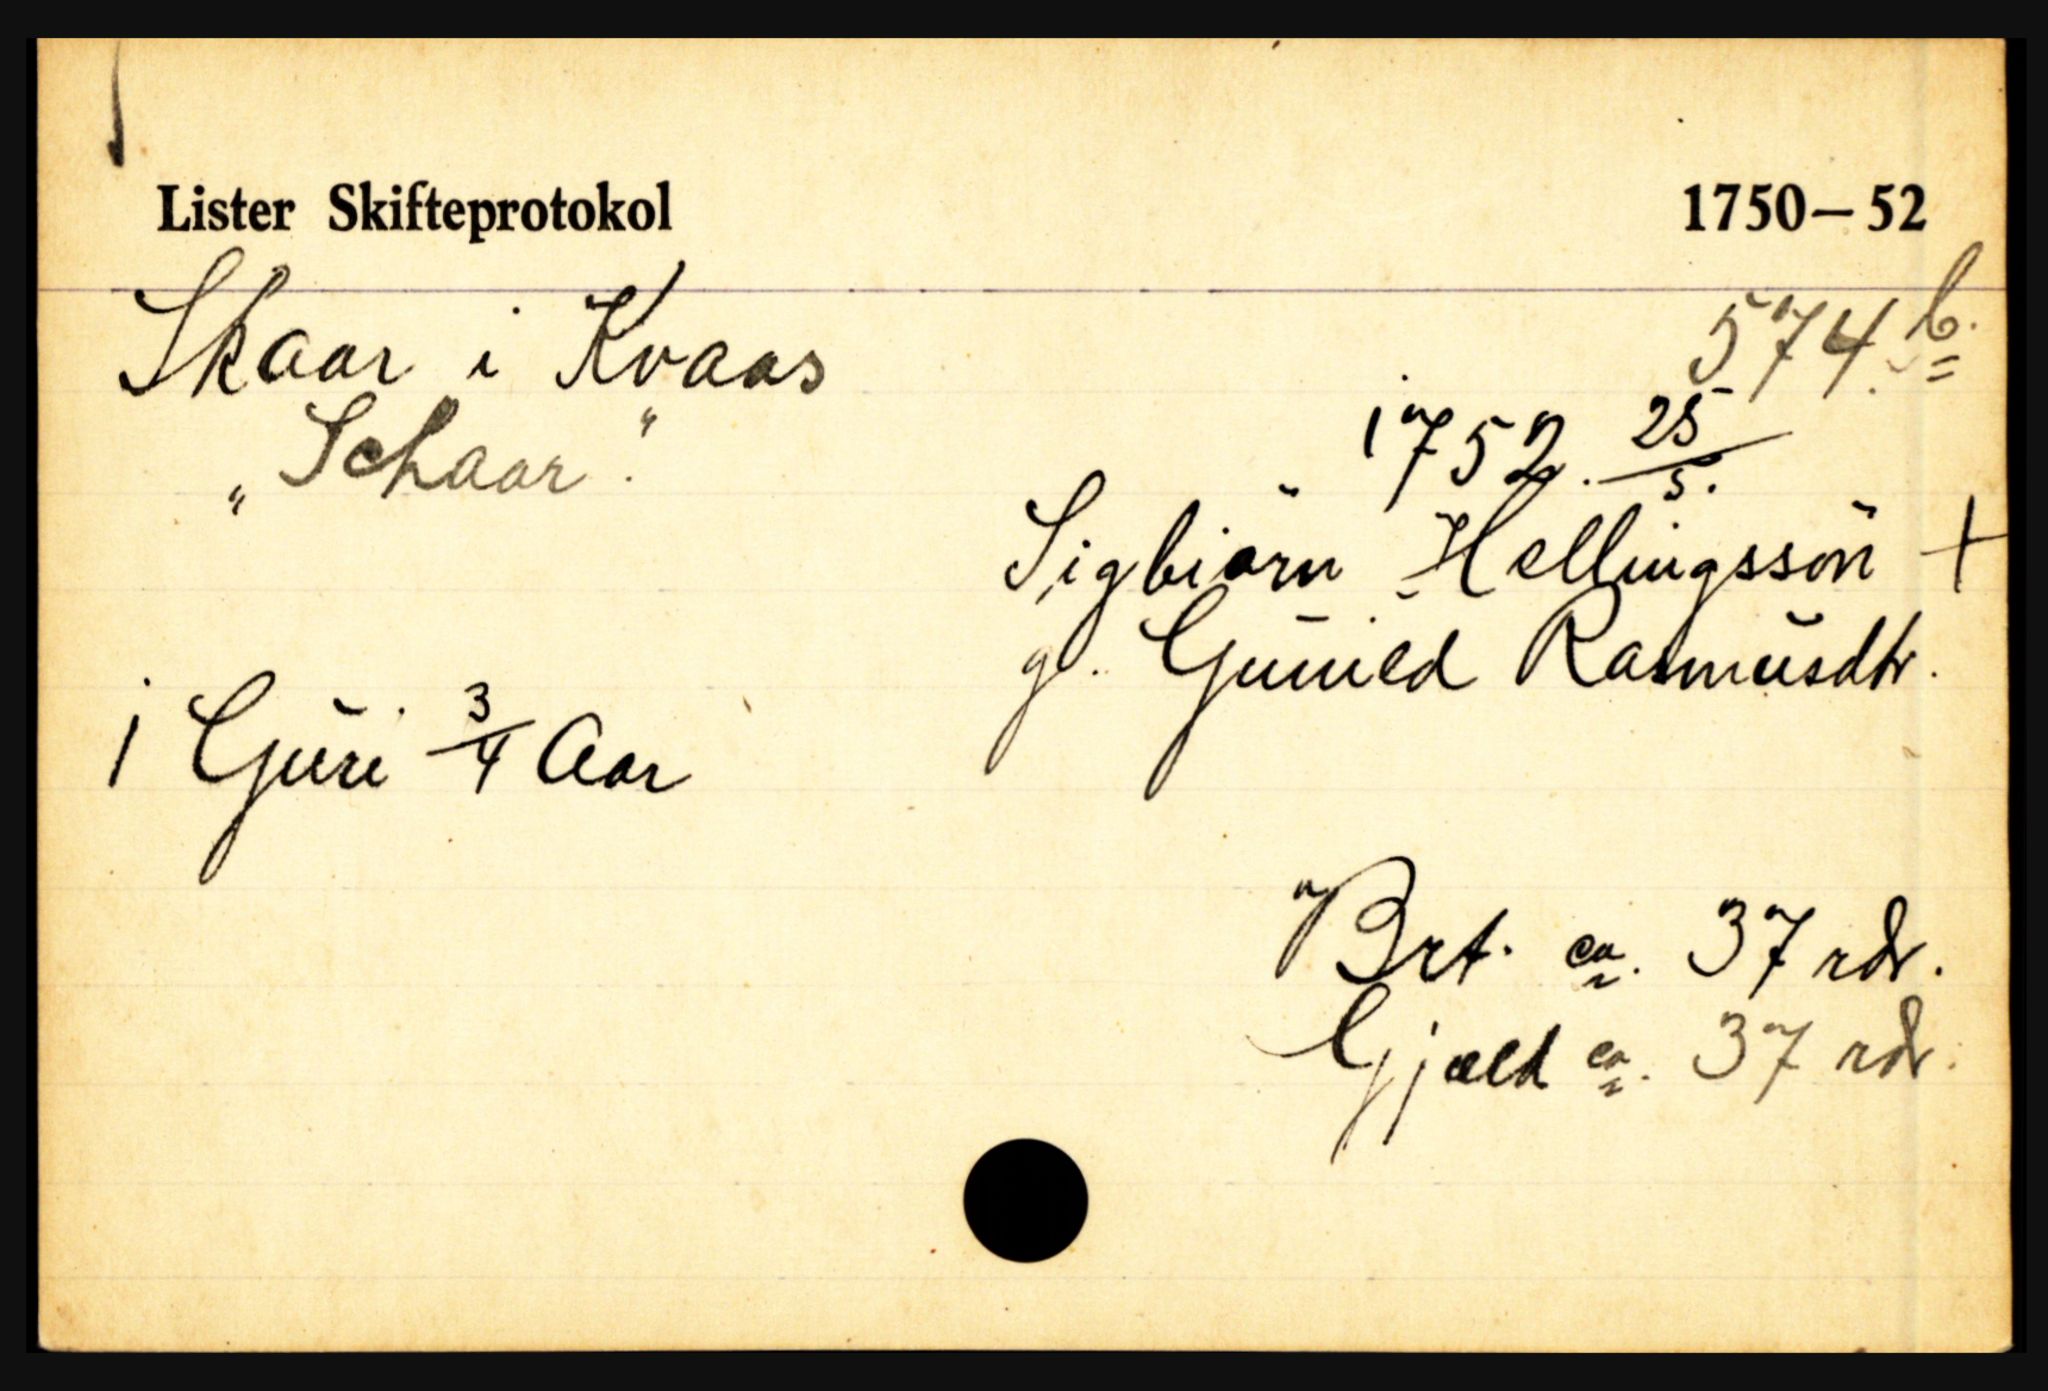 Lister Skifteprotokol 1750-52
Skaar i Kvaas 574 b.
"Schaar". 1752. 25/5.
Sigbiörn Hellingssön +
g. Gunild Rasmusdtr.
1 Guri 3/4 Aar
Brt. ca. 37 rdr.
Gjæld ca. 37 rdr.